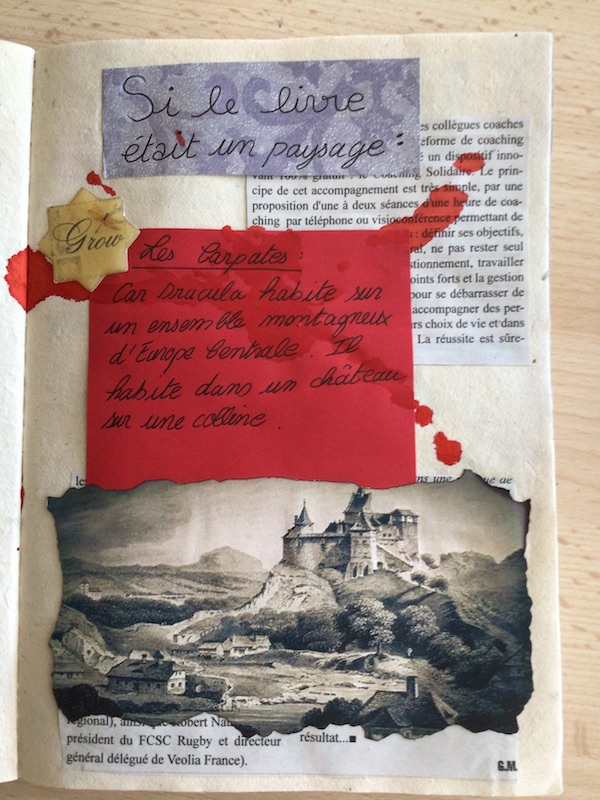 Si le livre
était un paysage :
es collégues coaches
eforme de coaching
é un dispositif inno-
vant 100% gratuit : le Coaching Solidaire. Le prin-
cipe de cet accompagnement est très simple, par une
proposition d'une à deux séances d'une heure de coa-
ching par téléphone ou visioconférence permettant de
: définir ses objectifs,
ral, ne pas rester seul
stionnement, travailler
oints forts et la gestion
pour se débarrasser de
accompagner des per-
rs choix de vie et dans
La réussite est sûre-
Grow
Les Carpates :
Car Dracula habite sur
un ensemble montagneux
d'Europe Centrale. Il
habite dans un château
sur une colline.
les
une
ae
régional), ainsi que Robert
président du FCSC Rugby et directeur
général délégué de Veolia France).
résultat...■
G.M.